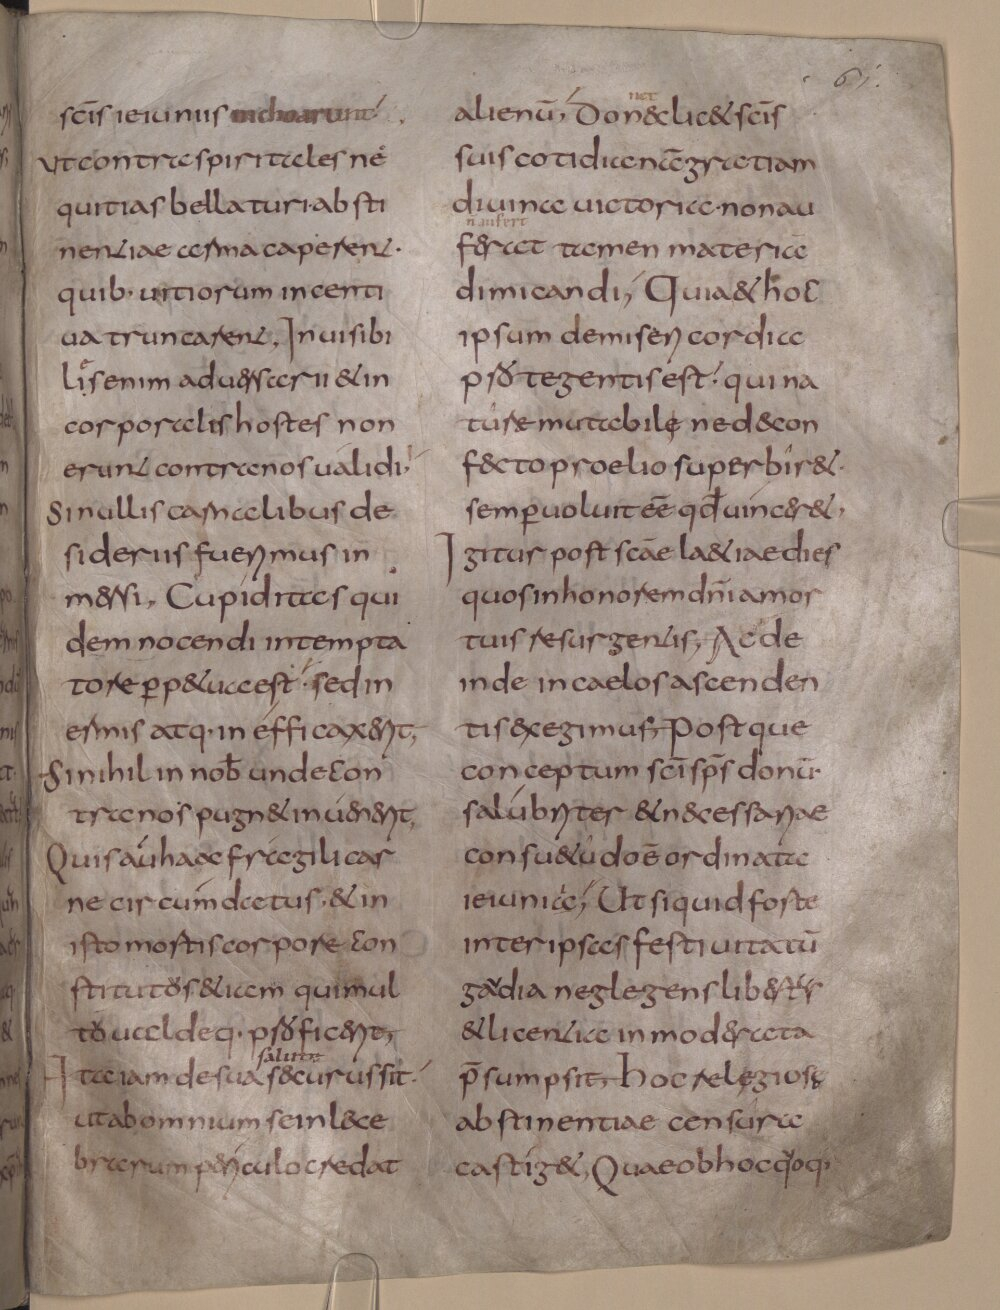 61.
scīs ieiuniis inchoarunt
ut contra spiritales ne
quitias bellaturi· absti
nentiae arma caperent·
quib· uitiorum incenti
ua truncarent, Inuisibi
lės enim aduersarii & in
corporalis hostes non
erunt contra nos ualidi,
Si nullis carnalibus de
sideriis fuerimus in
mersi, Cupiditas qui
dem nocendi in tempta
tore perpetua est· sed in
ermis atq· in efficax erit,
Si nihil in nob unde con
tra nos pugn& inuenerit,
Quis aū haac fragili car
ne circumdatus· & in
isto mortis corpore con
stitutus &iam qui mul
tū ualdeq· proficerit,
Ita iam de sua salute securus sit·
ut ab omnium se inlece
brarum periculo credat
alienū, Don& lic& scīs
suis cotidianā gratiam
diuinae uictoriae· non au
naufert
feret tamen materiā
dimicandi, Quia & hoc
ipsum de misericordia
protegentis est· qui na
turae mutabilę ne de con
fecto proelio superbir&·
semp uoluit eē qđ uincer&,
Igitur post scāe laetitiae dies
quos in honorem dn̄i a mor
tuis resurgentis, Ac de
inde in caelos ascenden
tis exegimus, Postque
conceptum scī sp̄s donū·
salubriter & necessariae
consuetudo ē ordinata
ieiunii, Ut si quid forte
inter ipsas festiuitatū
gaudia neglegens libertas
& licentia inmoderata
p̄sumpsit, hoc relegiosę
abstinentiae censura
castig&, Quae ob hoc quoq·